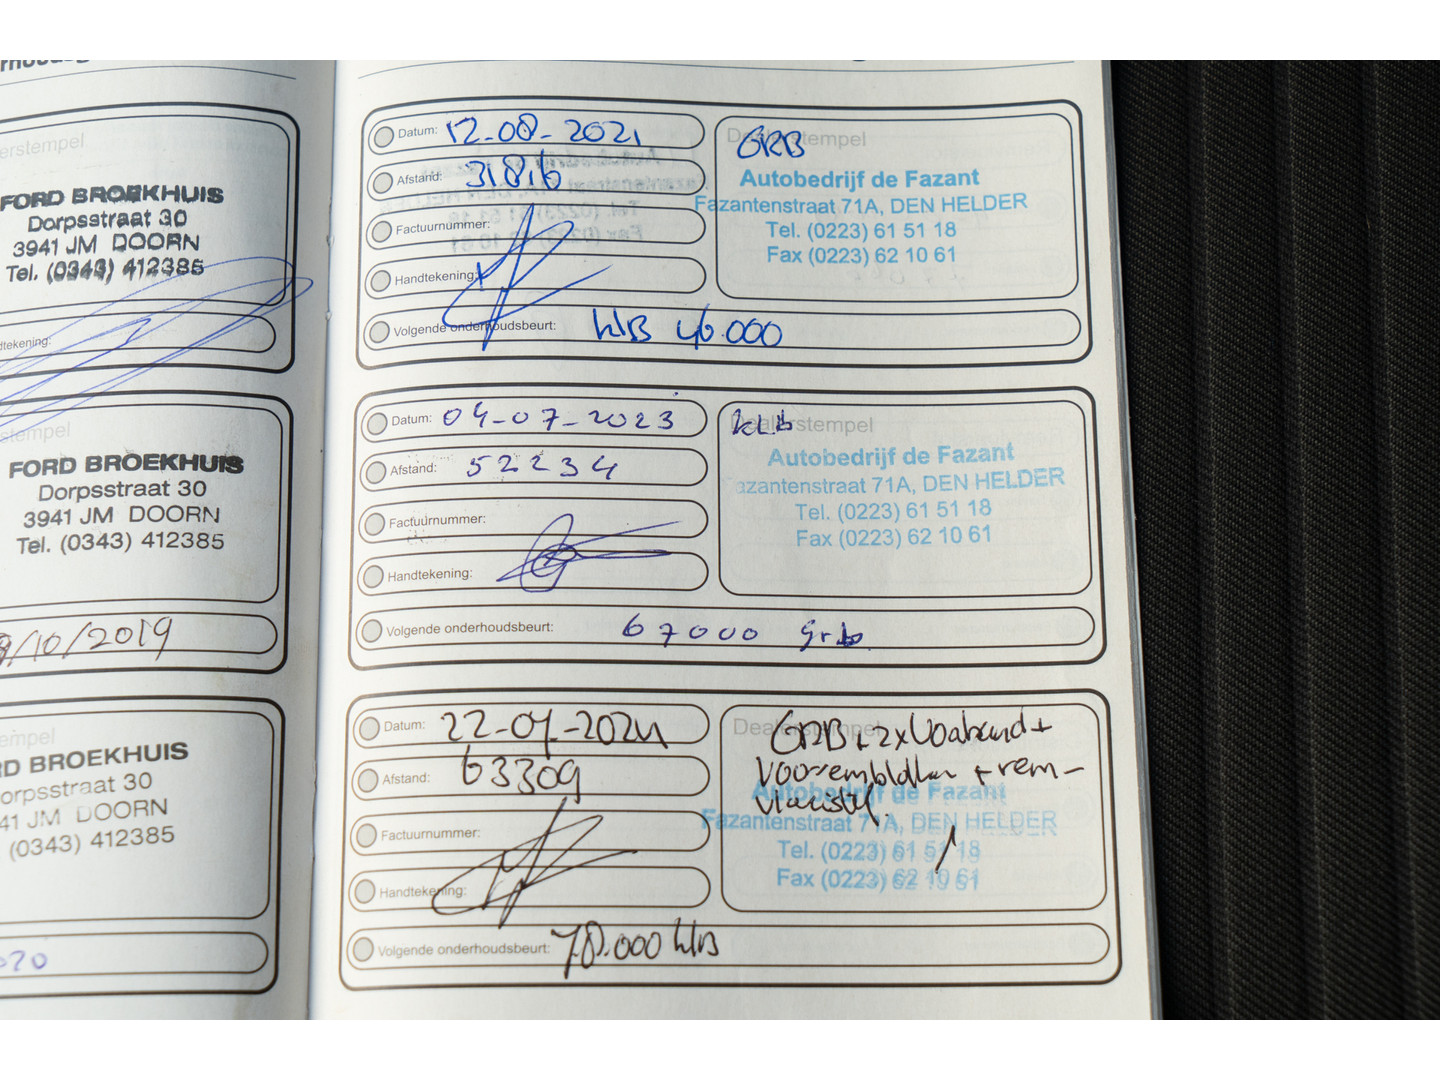 erstempel
FORD BROEKHUIS
Dorpsstraat 30
3941 JM DOORN
Tel. (0343) 412385
dtekening:
stempel
FORD BROEKHUIS
Dorpsstraat 30
3941 JM DOORN
Tel. (0343) 412385
/10/2019
empel
RD BROEKHUIS
orpsstraat 30
41 JM DOORN
(0343) 412385
020
Datum: 12-08-2021
Afstand: 31816
Factuurnummer:
Handtekening:
Volgende onderhoudsbeurt: klB 46.000
Dealerstempel
GRB
Autobedrijf de Fazant
Fazantenstraat 71A, DEN HELDER
Tel. (0223) 61 51 18
Fax (0223) 62 10 61
Datum: 04-07-2023
Afstand: 52234
Factuurnummer:
Handtekening:
Volgende onderhoudsbeurt: 67000 grb
Dealerstempel
KLB
Autobedrijf de Fazant
azantenstraat 71A, DEN HELDER
Tel. (0223) 61 51 18
Fax (0223) 62 10 61
Datum: 22-07-2024
Afstand: 63309
Factuurnummer:
Handtekening:
Volgende onderhoudsbeurt: 78.000 klB
Dealerstempel
GRB + 2x Voorband +
voorremblokken + rem-
vloeistof.
Autobedrijf de Fazant
Fazantenstraat 71A, DEN HELDER
Tel. (0223) 61 51 18
Fax (0223) 62 10 61